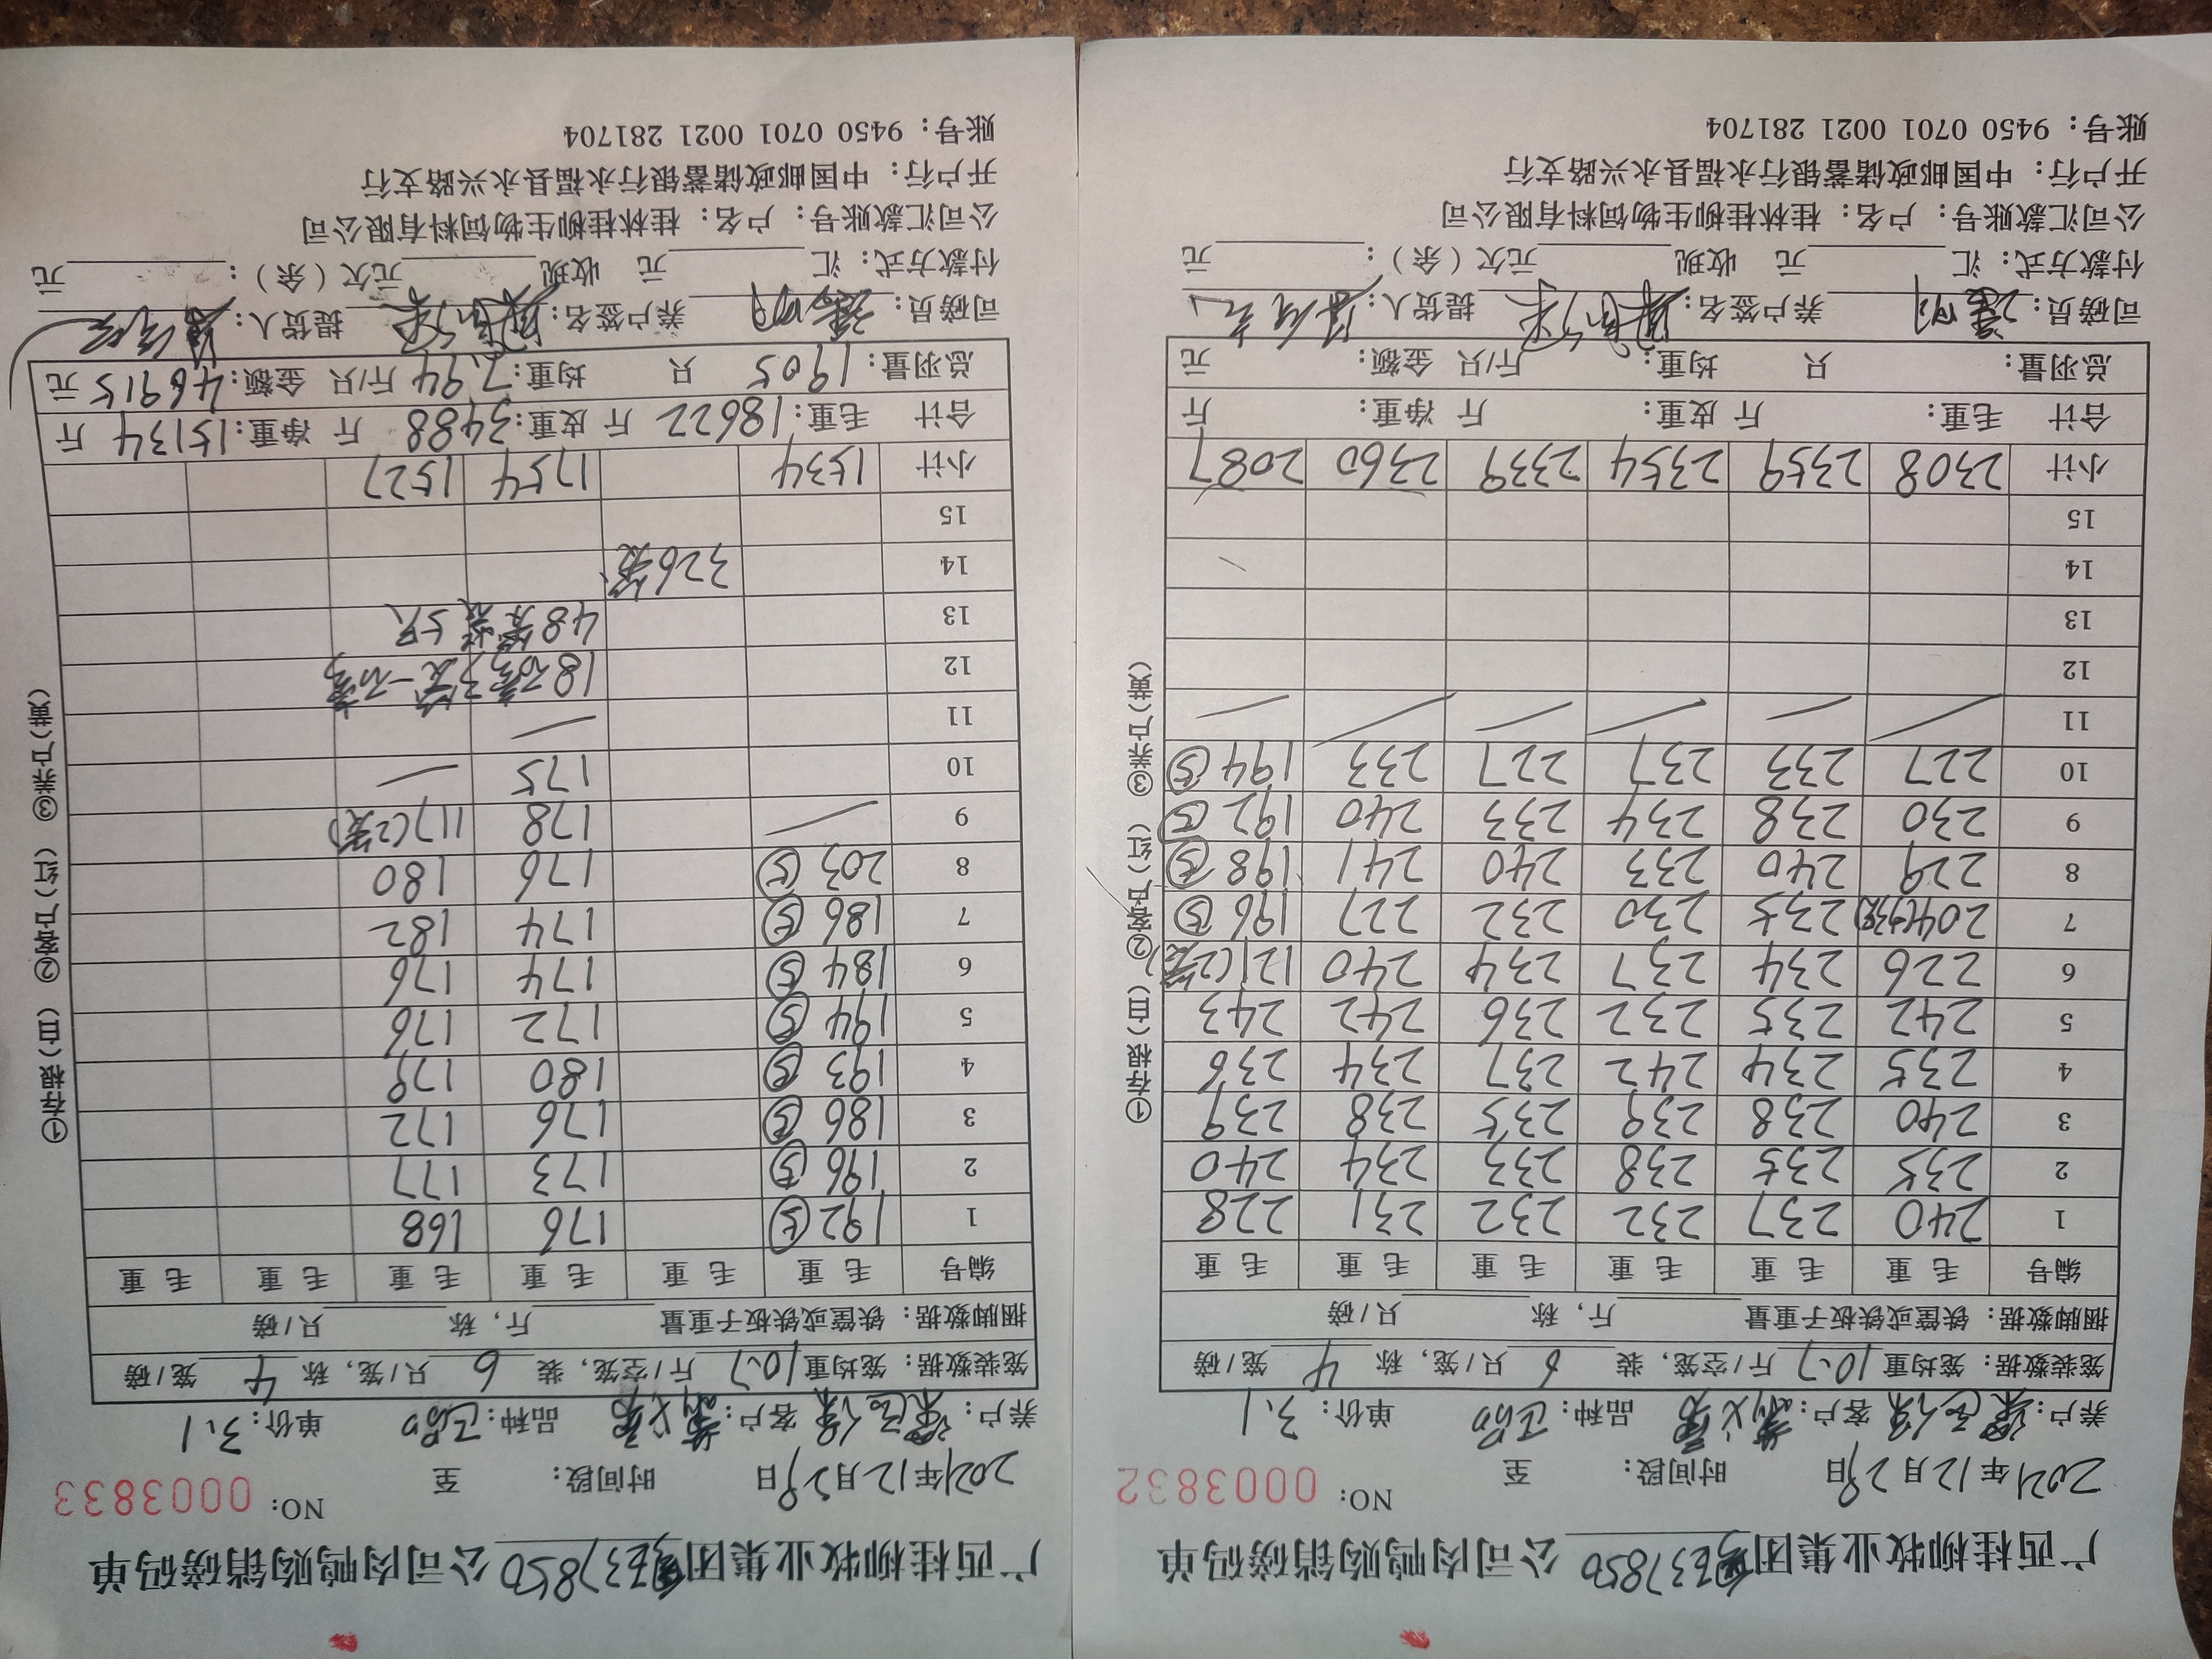 广西桂柳牧业集团 37850 公司肉鸭购销磅码单
NO: 0003832
2021年12月29日 时间段: 至
养户: 客户: 品种: 单价: 3.1
笼装数据: 笼均重 10.7 斤/空笼, 装 6 只/笼, 称 4 笼/磅
捆脚数据: 铁筐或铁板子重量 斤, 称 只/磅
编号 毛重 毛重 毛重 毛重 毛重 毛重
1 240 237 232 232 231 228
2 235 235 238 233 234 240
3 240 238 239 235 238 239
4 235 234 242 237 234 236
5 242 235 232 236 242 243
6 226 234 237 234 240 121(2笼)
7 204 235 230 232 227 196⑤
8 229 240 233 240 241 198⑤
9 230 238 234 233 240 192⑤
10 227 233 237 227 233 194⑤
11
12
13
14
15
小计 2308 2359 2354 2339 2360 2087
合计 毛重: 斤 皮重: 斤 净重: 斤
总羽量: 只 均重: 斤/只 金额: 元
司磅员: 养户签名: 提货人:
付款方式: 汇 元 收现 元欠(余): 元
公司汇款账号: 户名: 桂林桂柳生物饲料有限公司
开户行: 中国邮政储蓄银行永福县永兴路支行
账号: 9450 0701 0021 281704
①存根(白) ②客户(红) ③养户(黄)
广西桂柳牧业集团 37850 公司肉鸭购销磅码单
NO: 0003833
2021年12月29日 时间段: 至
养户: 客户: 品种: 单价: 3.1
笼装数据: 笼均重 10.7 斤/空笼, 装 6 只/笼, 称 4 笼/磅
捆脚数据: 铁筐或铁板子重量 斤, 称 只/磅
编号 毛重 毛重 毛重 毛重 毛重 毛重
1 192⑤ 176 168
2 196⑤ 173 177
3 186⑤ 176 172
4 193⑤ 180 179
5 194⑤ 172 176
6 184⑤ 174 176
7 186⑤ 174 182
8 203⑤ 176 180
9 178 117(2笼)
10 175
11
12 18磅3笼一磅
13 48笼装5只
14 326笼
15
小计 1534 1754 1527
合计 毛重: 18622 斤 皮重: 3488 斤 净重: 15134 斤
总羽量: 1905 只 均重: 7.94 斤/只 金额: 46915 元
司磅员: 养户签名: 提货人:
付款方式: 汇 元 收现 元欠(余): 元
公司汇款账号: 户名: 桂林桂柳生物饲料有限公司
开户行: 中国邮政储蓄银行永福县永兴路支行
账号: 9450 0701 0021 281704
①存根(白) ②客户(红) ③养户(黄)